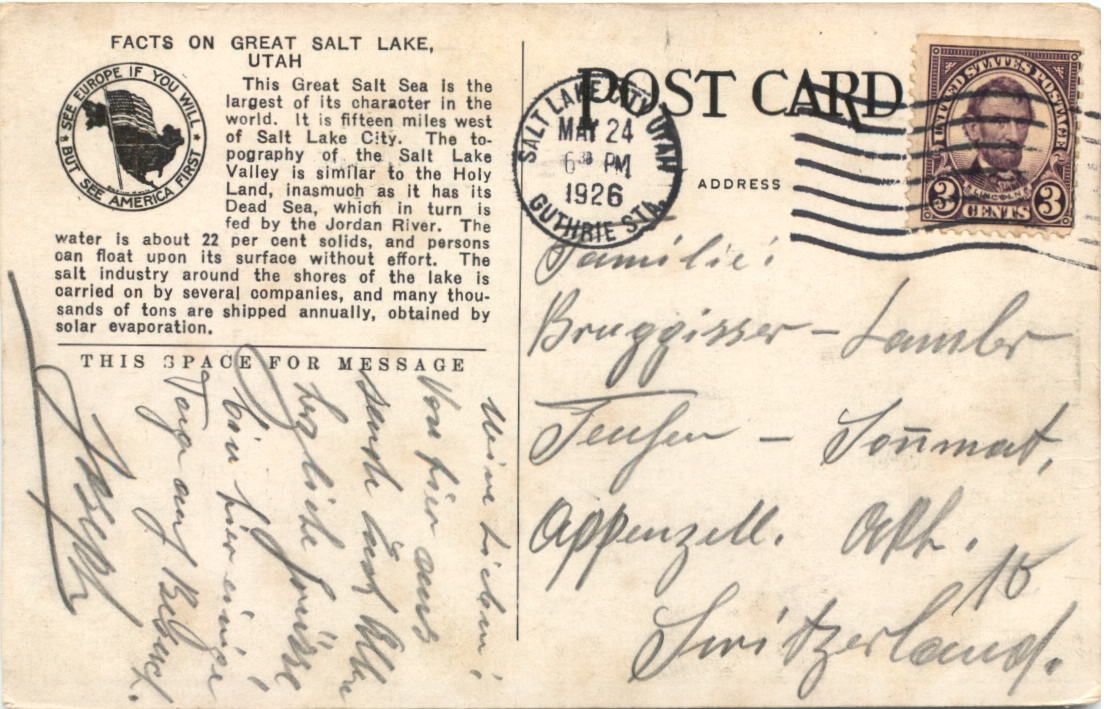 FACTS ON GREAT SALT LAKE,
UTAH
SEE EUROPE IF YOU WILL
BUT SEE AMERICA FIRST
This Great Salt Sea is the
largest of its character in the
world. It is fifteen miles west
of Salt Lake City. The to-
pography of the Salt Lake
Valley is similar to the Holy
Land, inasmuch as it has its
Dead Sea, which in turn is
fed by the Jordan River. The
water is about 22 per cent solids, and persons
can float upon its surface without effort. The
salt industry around the shores of the lake is
carried on by several companies, and many thou-
sands of tons are shipped annually, obtained by
solar evaporation.
THIS SPACE FOR MESSAGE
Meine Lieben!
Von hier aus
sende Euch Allen
herzliche Grüsse
bin hier einige
Tage auf Besuch.
Joseph
POST CARD
SALT LAKE CITY, UTAH
MAY 24
6 30 PM
1926
GUTHRIE STA.
ADDRESS
UNITED STATES POSTAGE
LINCOLN
3 CENTS 3
Familie:
Bruggisser – Lamler
Teufen – Sonnmat,
Appenzell.
Switzerland.